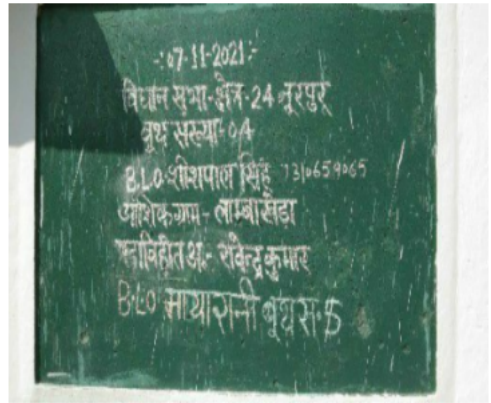 -:07-11-2021:-
विधान सभा-क्षेत्र-24 नूरपुर
बूथ संख्या-04
B.L.O-शीशपाल सिंह
आंशिक ग्राम - लाम्बाखेडा
पदाविहीत अ.- रविन्द्र कुमार
B.L.O मायारानी बूथ स.-5